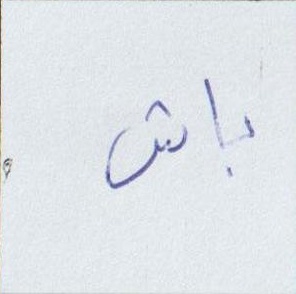 باش